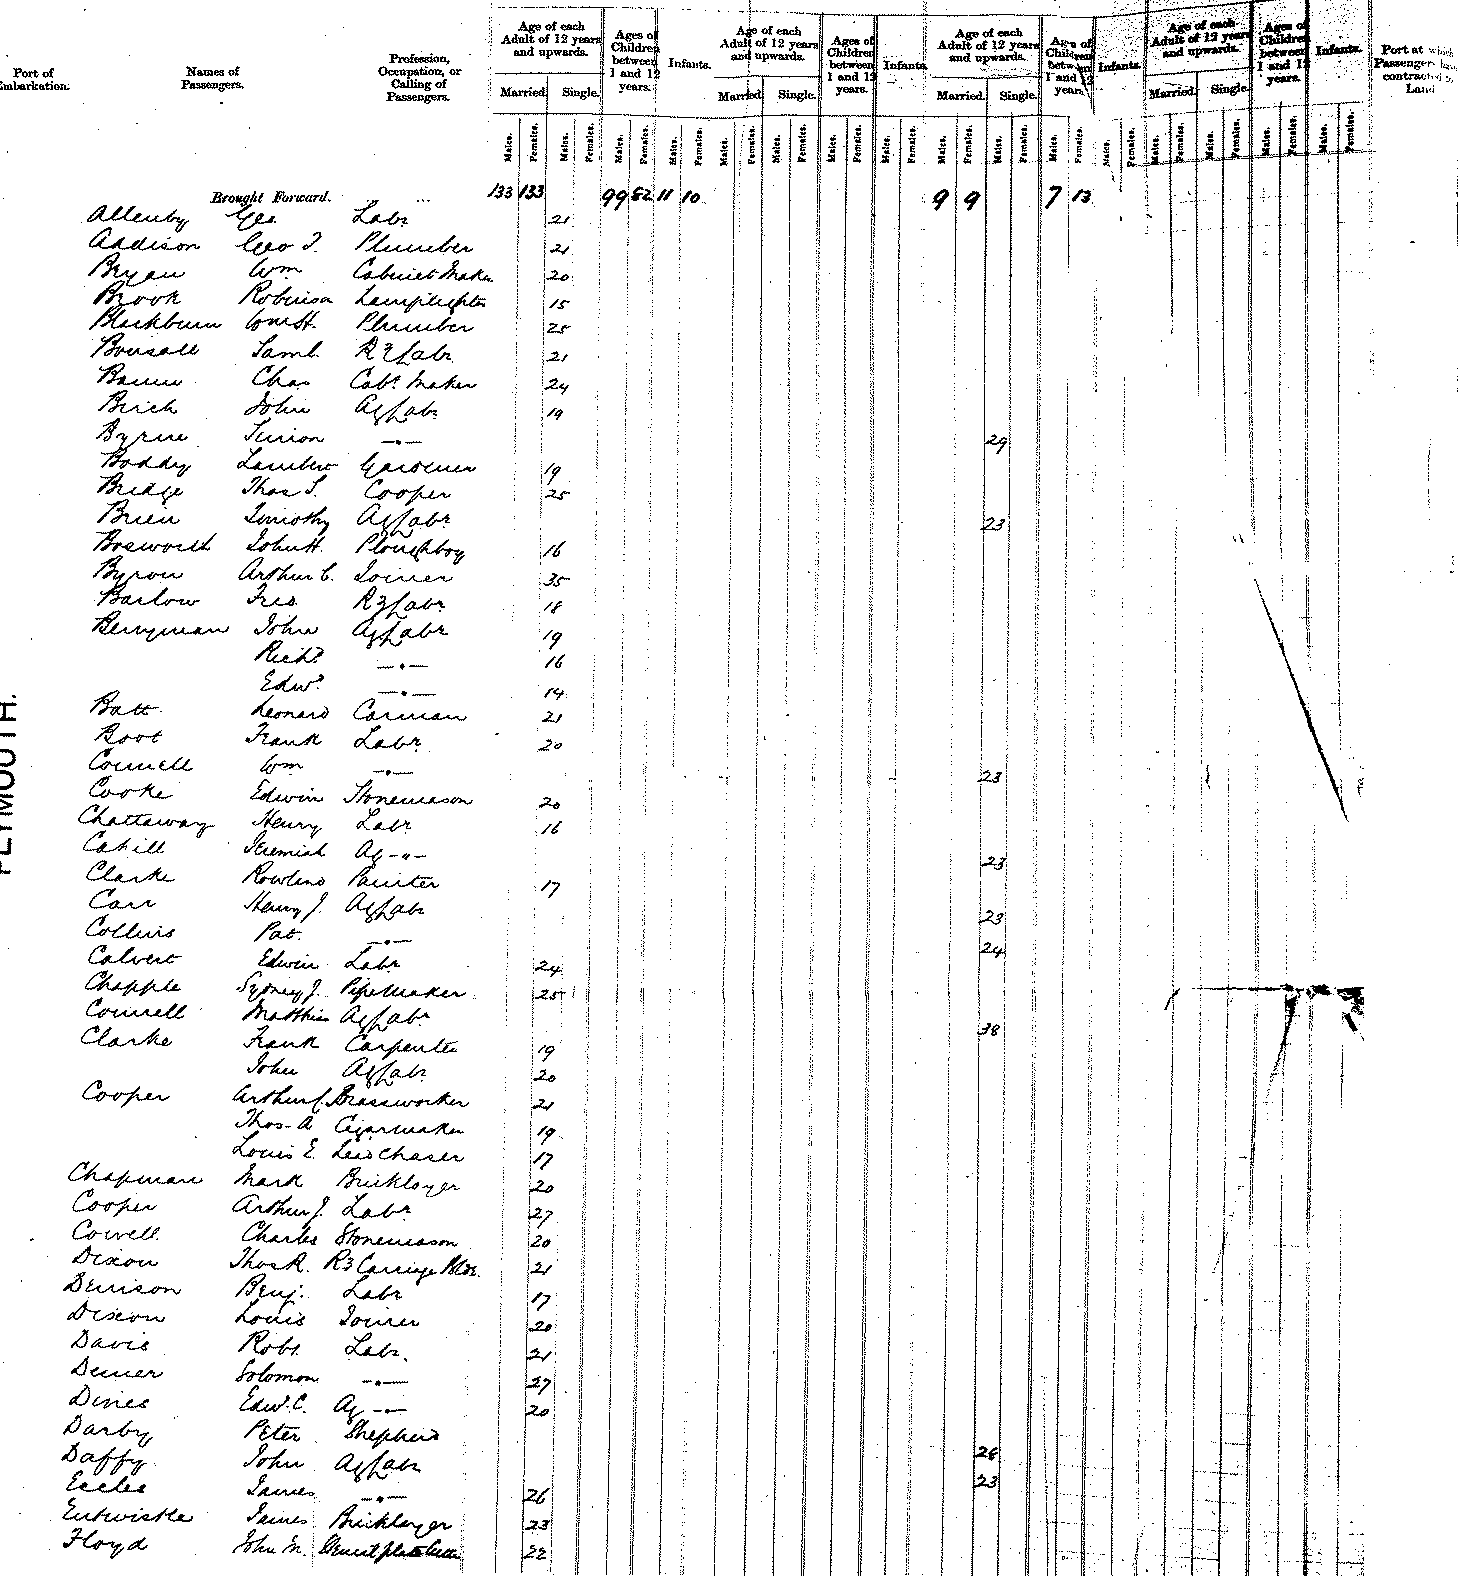 Port of Embarkation.
Names of Passengers.
Profession, Occupation, or Calling of Passengers.
Age of each Adult of 12 years and upwards. Ages of Children between 1 and 12 years. Infants. Age of each Adult of 12 years and upwards. Ages of Children between 1 and 12 years. Infants. Age of each Adult of 12 years and upwards. Ages of Children between 1 and 12 years. Infants. Age of each Adult of 12 years and upwards. Ages of Children between 1 and 12 years. Infants.
Port at which Passengers have contracted to Land
Married. Single. Married. Single. Married. Single. Married. Single.
Males. Females. Males. Females. Males. Females. Males. Females. Males. Females. Males. Females. Males. Females. Males. Females. Males. Females. Males. Females. Males. Females. Males. Females. Males. Females. Males. Females. Males. Females. Males. Females.
PLYMOUTH.
Brought Forward. ... 133 133 99 82 11 10 9 9 7 13
Allenby Geo Labr 21
Addison Geo T. Plumber 21
Bryan Wm Cabinet Maker 20
Brook Robinson Lamplighter 15
Blackburn Wm H. Plumber 25
Bonsall Saml. Ry Labr 21
Chas Cabt Maker 24
Birch John Ag Labr 19
Byrne Simon —"— 29
Boddy Lambert Gardener 19
Bridge Thos S. Cooper 25
Brien Timothy Ag Labr 23
Bosworth John H. Ploughboy 16
Byron Arthur C. Joiner 35
Barlow Fred Ry Labr 18
Berryman John Ag Labr 19
Richd —"— 16
Edwd —"— 14
Batt Leonard Carman 21
Boot Frank Labr 20
Connell Wm —"— 23
Cooke Edwin Stonemason 20
Chattaway Henry Labr 16
Cahill Jeremiah Ag —"— 23
Clarke Rowland Painter 17
Carr Henry J. Ag Labr 23
Collins Pat. —"— 24
Calvert Edwin Labr 24
Chapple Sydney J. Pipemaker 25
Connell Matthias Ag Labr 38
Clarke Frank Carpenter 19
John Ag Labr 20
Cooper Arthur C. Brassworker 21
Thos. A. Cigarmaker 19
Louis E. Chaser 17
Chapman Mark Bricklayer 20
Cooper Arthur J. Labr 27
Cowell Charles Stonemason 20
Dixon Thos R. Ry Carriage Bldr. 21
Denison Benj. Labr 17
Dixon Louis Joiner 20
Davis Robt. Labr. 21
Solomon —"— 27
Dines Edw. C. Ag —"— 20
Darby Peter Shepherd 26
Daffy John Ag Labr 23
Eccles James —"— 26
Entwistle James Bricklayer 23
Floyd John M. 22